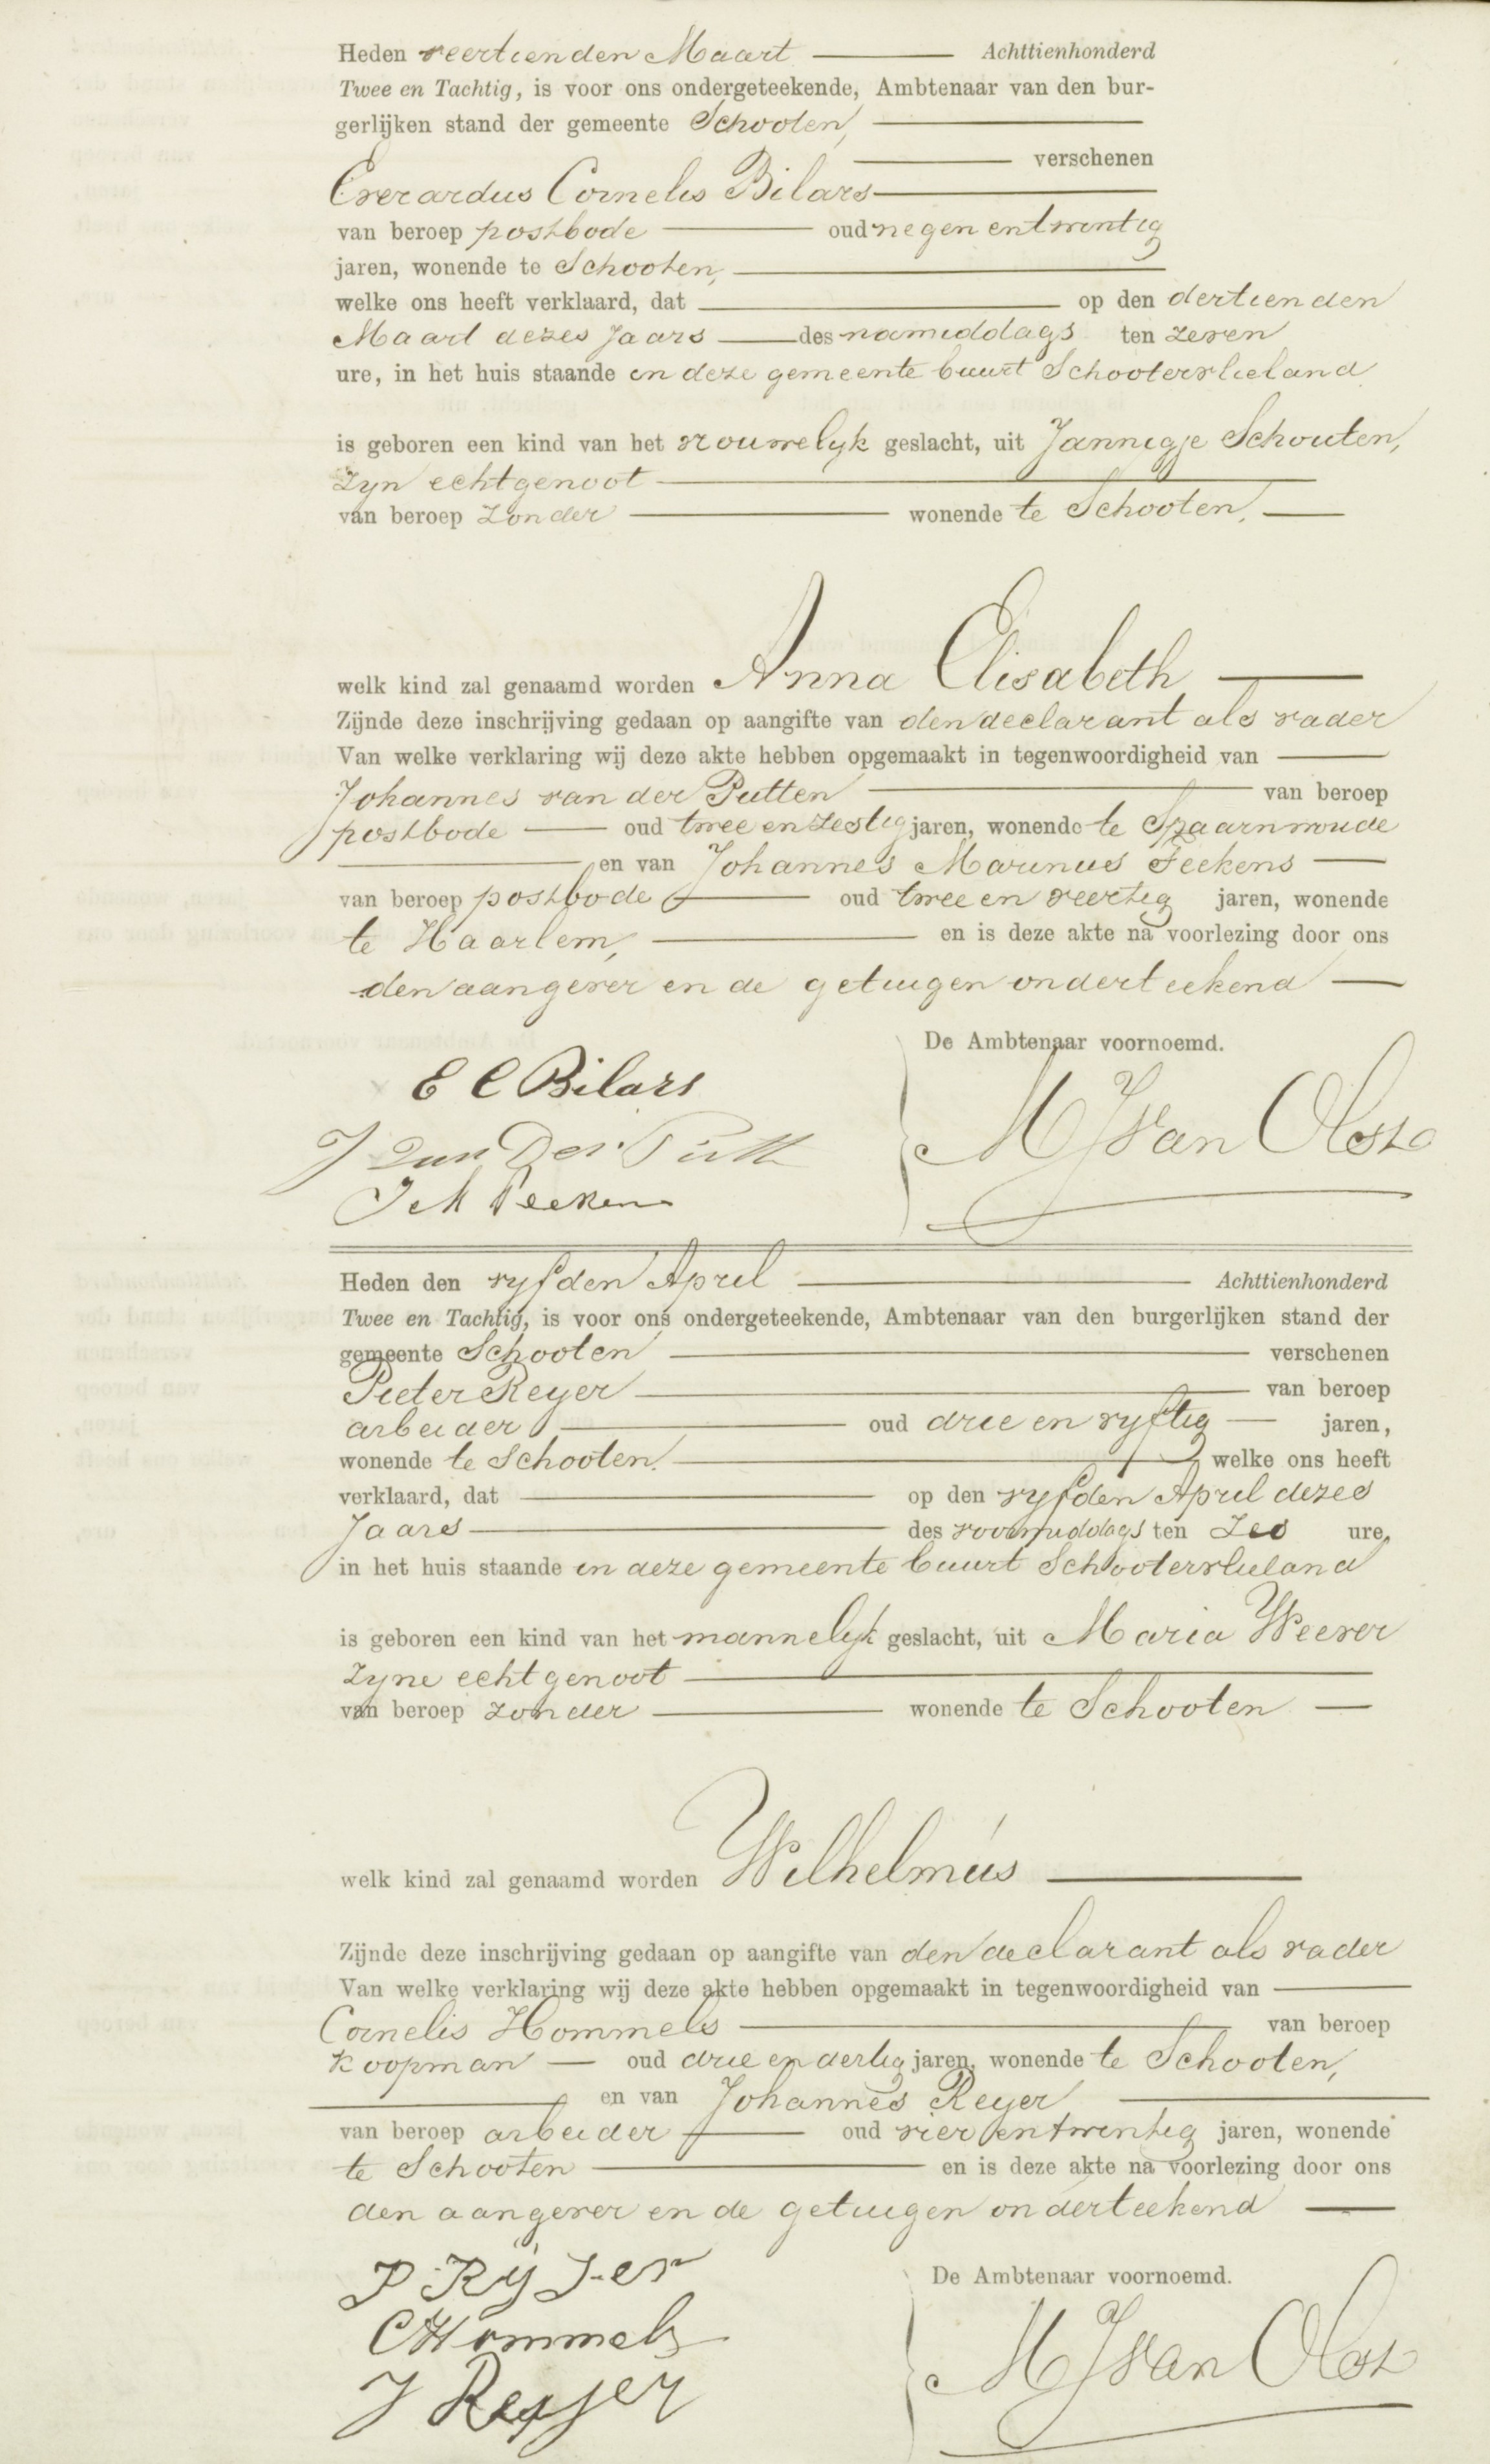 Heden veertienden Maart Achttienhonderd
Twee en Tachtig, is voor ons ondergeteekende, Ambtenaar van den bur-
gerlijken stand der gemeente Schooten,
verschenen
Everardus Cornelis Bilars
van beroep postbode oud negen entwintig
jaren, wonende te Schooten,
welke ons heeft verklaard, dat op den dertienden
Maart dezes Jaars des namiddags ten zeven
ure, in het huis staande in deze gemeente buurt Schootervlieland
is geboren een kind van het vrouwelyk geslacht, uit Jannigje Schouten,
Zyn echtgenoot
van beroep zonder wonende te Schooten,
welk kind zal genaamd worden Anna Elisabeth
Zijnde deze inschrijving gedaan op aangifte van den declarant als vader
Van welke verklaring wij deze akte hebben opgemaakt in tegenwoordigheid van
Johannes van der Putten van beroep
postbode oud twee en zestig jaren, wonende te Spaarnwoude
en van Johannes Marinus Feekens
van beroep postbode oud twee en veertig jaren, wonende
te Haarlem, en is deze akte na voorlezing door ons
den aangever en de getuigen onderteekend
De Ambtenaar voornoemd.
E C Bilars
J van Der Putt
M J Van Olst
J M Feeken
Heden den vyfden April Achttienhonderd
Twee en Tachtig, is voor ons ondergeteekende, Ambtenaar van den burgerlijken stand der
gemeente Schooten verschenen
Pieter Reyer van beroep
arbeider oud drie en vyftig jaren,
wonende te Schooten. welke ons heeft
verklaard, dat op den vyfden April dezes
Jaars des voormiddags ten Zes ure,
in het huis staande in deze gemeente buurt Schootervlieland
is geboren een kind van het mannelyk geslacht, uit Maria Wever
Zyne echtgenoot
van beroep zonder wonende te Schooten
welk kind zal genaamd worden Wilhelmus
Zijnde deze inschrijving gedaan op aangifte van den declarant als vader
Van welke verklaring wij deze akte hebben opgemaakt in tegenwoordigheid van
Cornelis Hommels van beroep
koopman oud drie en dertig jaren, wonende te Schooten,
en van Johannes Reyer
van beroep arbeider oud vier entwintig jaren, wonende
te Schooten en is deze akte na voorlezing door ons
den aangever en de getuigen onderteekend
P Ryjer
De Ambtenaar voornoemd.
C Hommels
M J Van Olst
J Reyjer